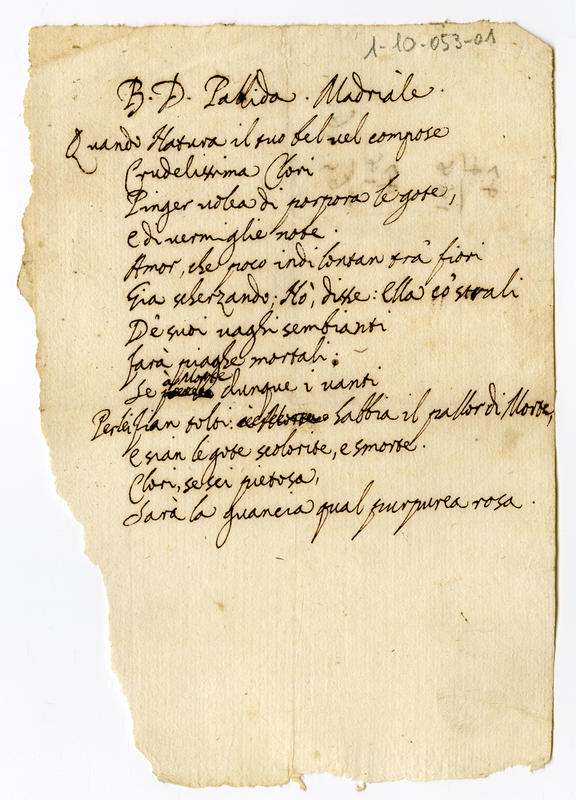 1-10-053-01
B. D. Pallida. Madriàle.
Quando Natura il tuo bel uel compose
Crudelissima Clori
Pinger uolea di porpora le gote,
e di uermiglie note.
Amor, che poco indi lontan trà fiori
Gia scherzando; Nò, disse: Ella cò strali
De suoi uaghi sembianti
Farà piaghe mortali.
Se à Morte dunque i uanti
Per lei fian tolti: habbia il pallor di Morte,
e sian le gote scolorite, e smorte.
Clori, se sei pietosa,
Sarà la guancia qual purpurea rosa.